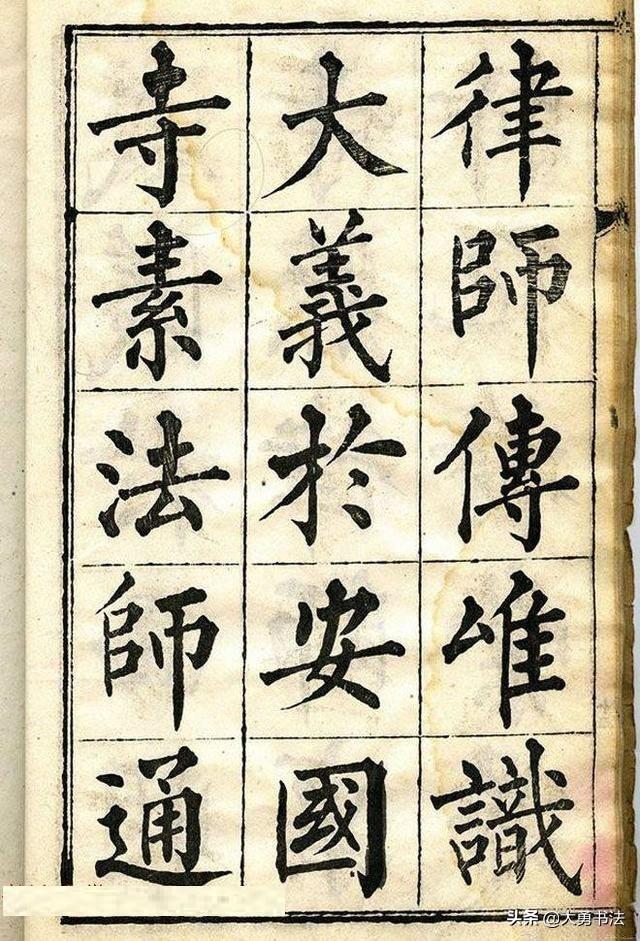 律師傳唯識
大義於安國
寺素法師通
头条 @大勇书法